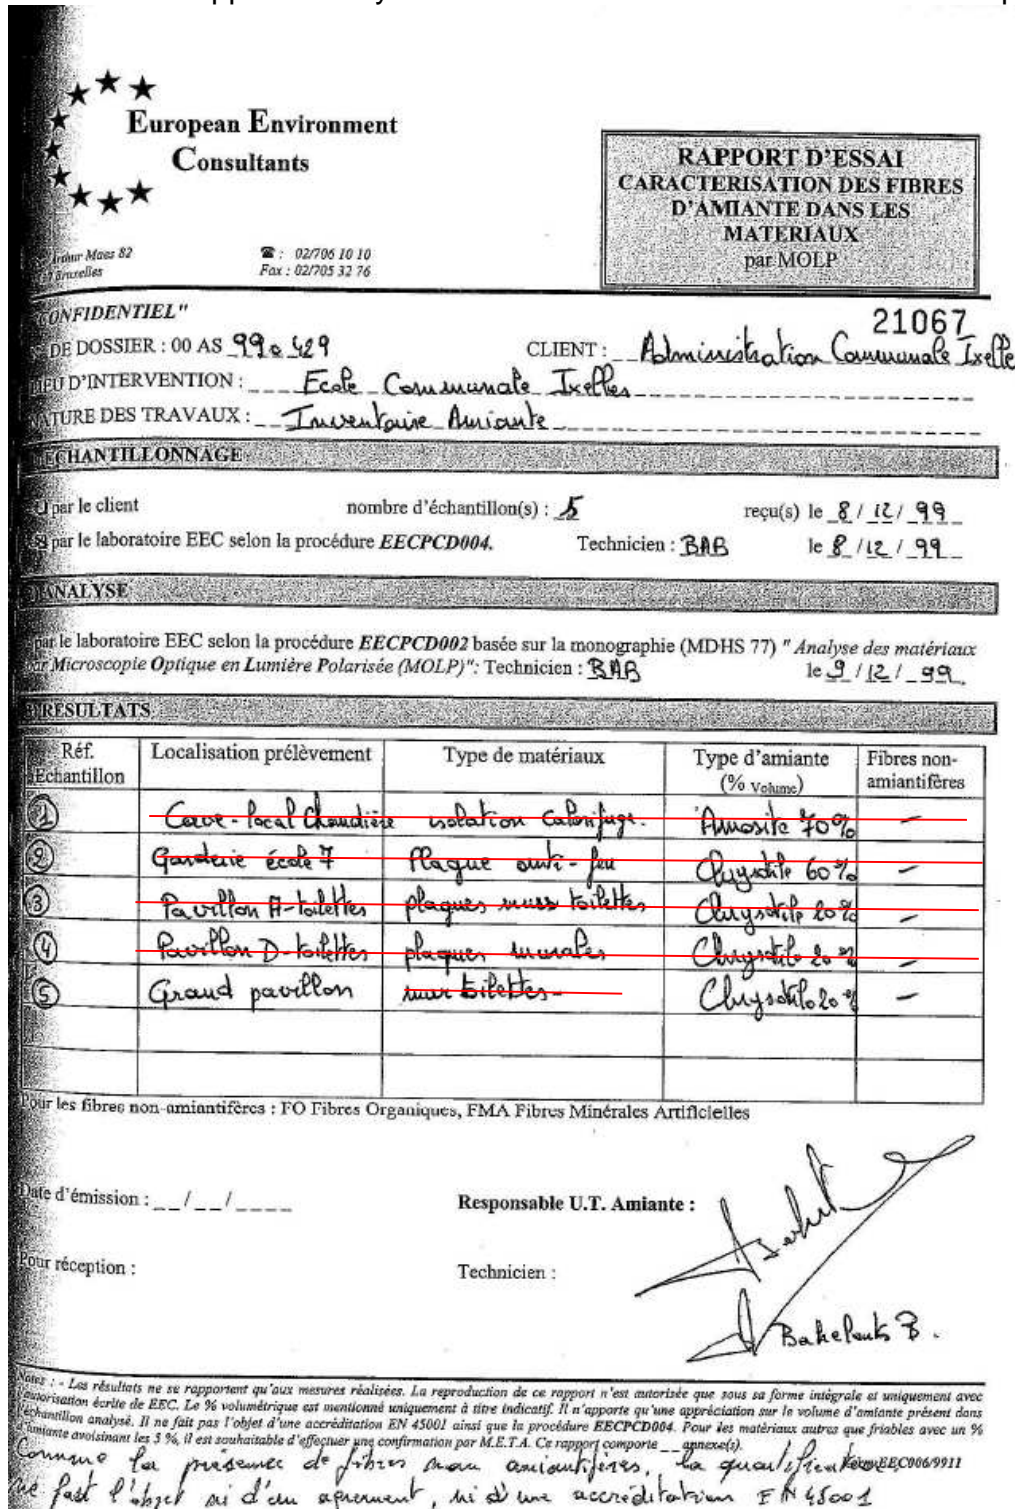 European Environment
Consultants
RAPPORT D'ESSAI
CARACTERISATION DES FIBRES
D'AMIANTE DANS LES
MATERIAUX
par MOLP
Maes 82
Bruxelles
☎ : 02/706 10 10
Fax : 02/705 32 76
CONFIDENTIEL"
21067
DE DOSSIER : 00 AS 99 429
CLIENT : Administration Communale Ixelle
LIEU D'INTERVENTION : Ecole Communale Ixelles
NATURE DES TRAVAUX : Inventaire Amiante
ECHANTILLONNAGE
par le client
nombre d'échantillon(s) : 5
reçu(s) le 8 / 12 / 99
par le laboratoire EEC selon la procédure EECPCD004.
Technicien : BAB
le 8 / 12 / 99
ANALYSE
par le laboratoire EEC selon la procédure EECPCD002 basée sur la monographie (MDHS 77) " Analyse des matériaux
par Microscopie Optique en Lumière Polarisée (MOLP)": Technicien : BAB le 9 / 12 / 99
RESULTATS
Réf. Echantillon | Localisation prélèvement | Type de matériaux | Type d'amiante (% Volume) | Fibres non-amiantifères
1 Cave - local Chaudière isolation Calorifuge. Amosite 70% –
2 Garderie école 7 Plaque anti-feu Chrysotile 60% –
3 Pavillon A-toilettes plaques murs toilettes Chrysotile 20% –
4 Pavillon D-toilettes plaques murales Chrysotile 20% –
5 Grand pavillon mur toilettes Chrysotile 20% –
Pour les fibres non-amiantifères : FO Fibres Organiques, FMA Fibres Minérales Artificielles
Date d'émission : __/__/____
Responsable U.T. Amiante :
Pour réception :
Technicien :
Bahelants B.
Notes : - Les résultats ne se rapportent qu'aux mesures réalisées. La reproduction de ce rapport n'est autorisée que sous sa forme intégrale et uniquement avec
l'autorisation écrite de EEC. Le % volumétrique est mentionné uniquement à titre indicatif. Il n'apporte qu'une appréciation sur le volume d'amiante présent dans
l'échantillon analysé. Il ne fait pas l'objet d'une accréditation EN 45001 ainsi que la procédure EECPCD004. Pour les matériaux autres que friables avec un %
d'amiante avoisinant les 3 %, il est souhaitable d'effectuer une confirmation par M.E.T.A. Ce rapport comporte __ annexe(s).
Comme la présence de fibres non amiantifères, la quantification EEC006/9911
ne fast l'objet ni d'un agrement, ni d'une accréditation EN 45001